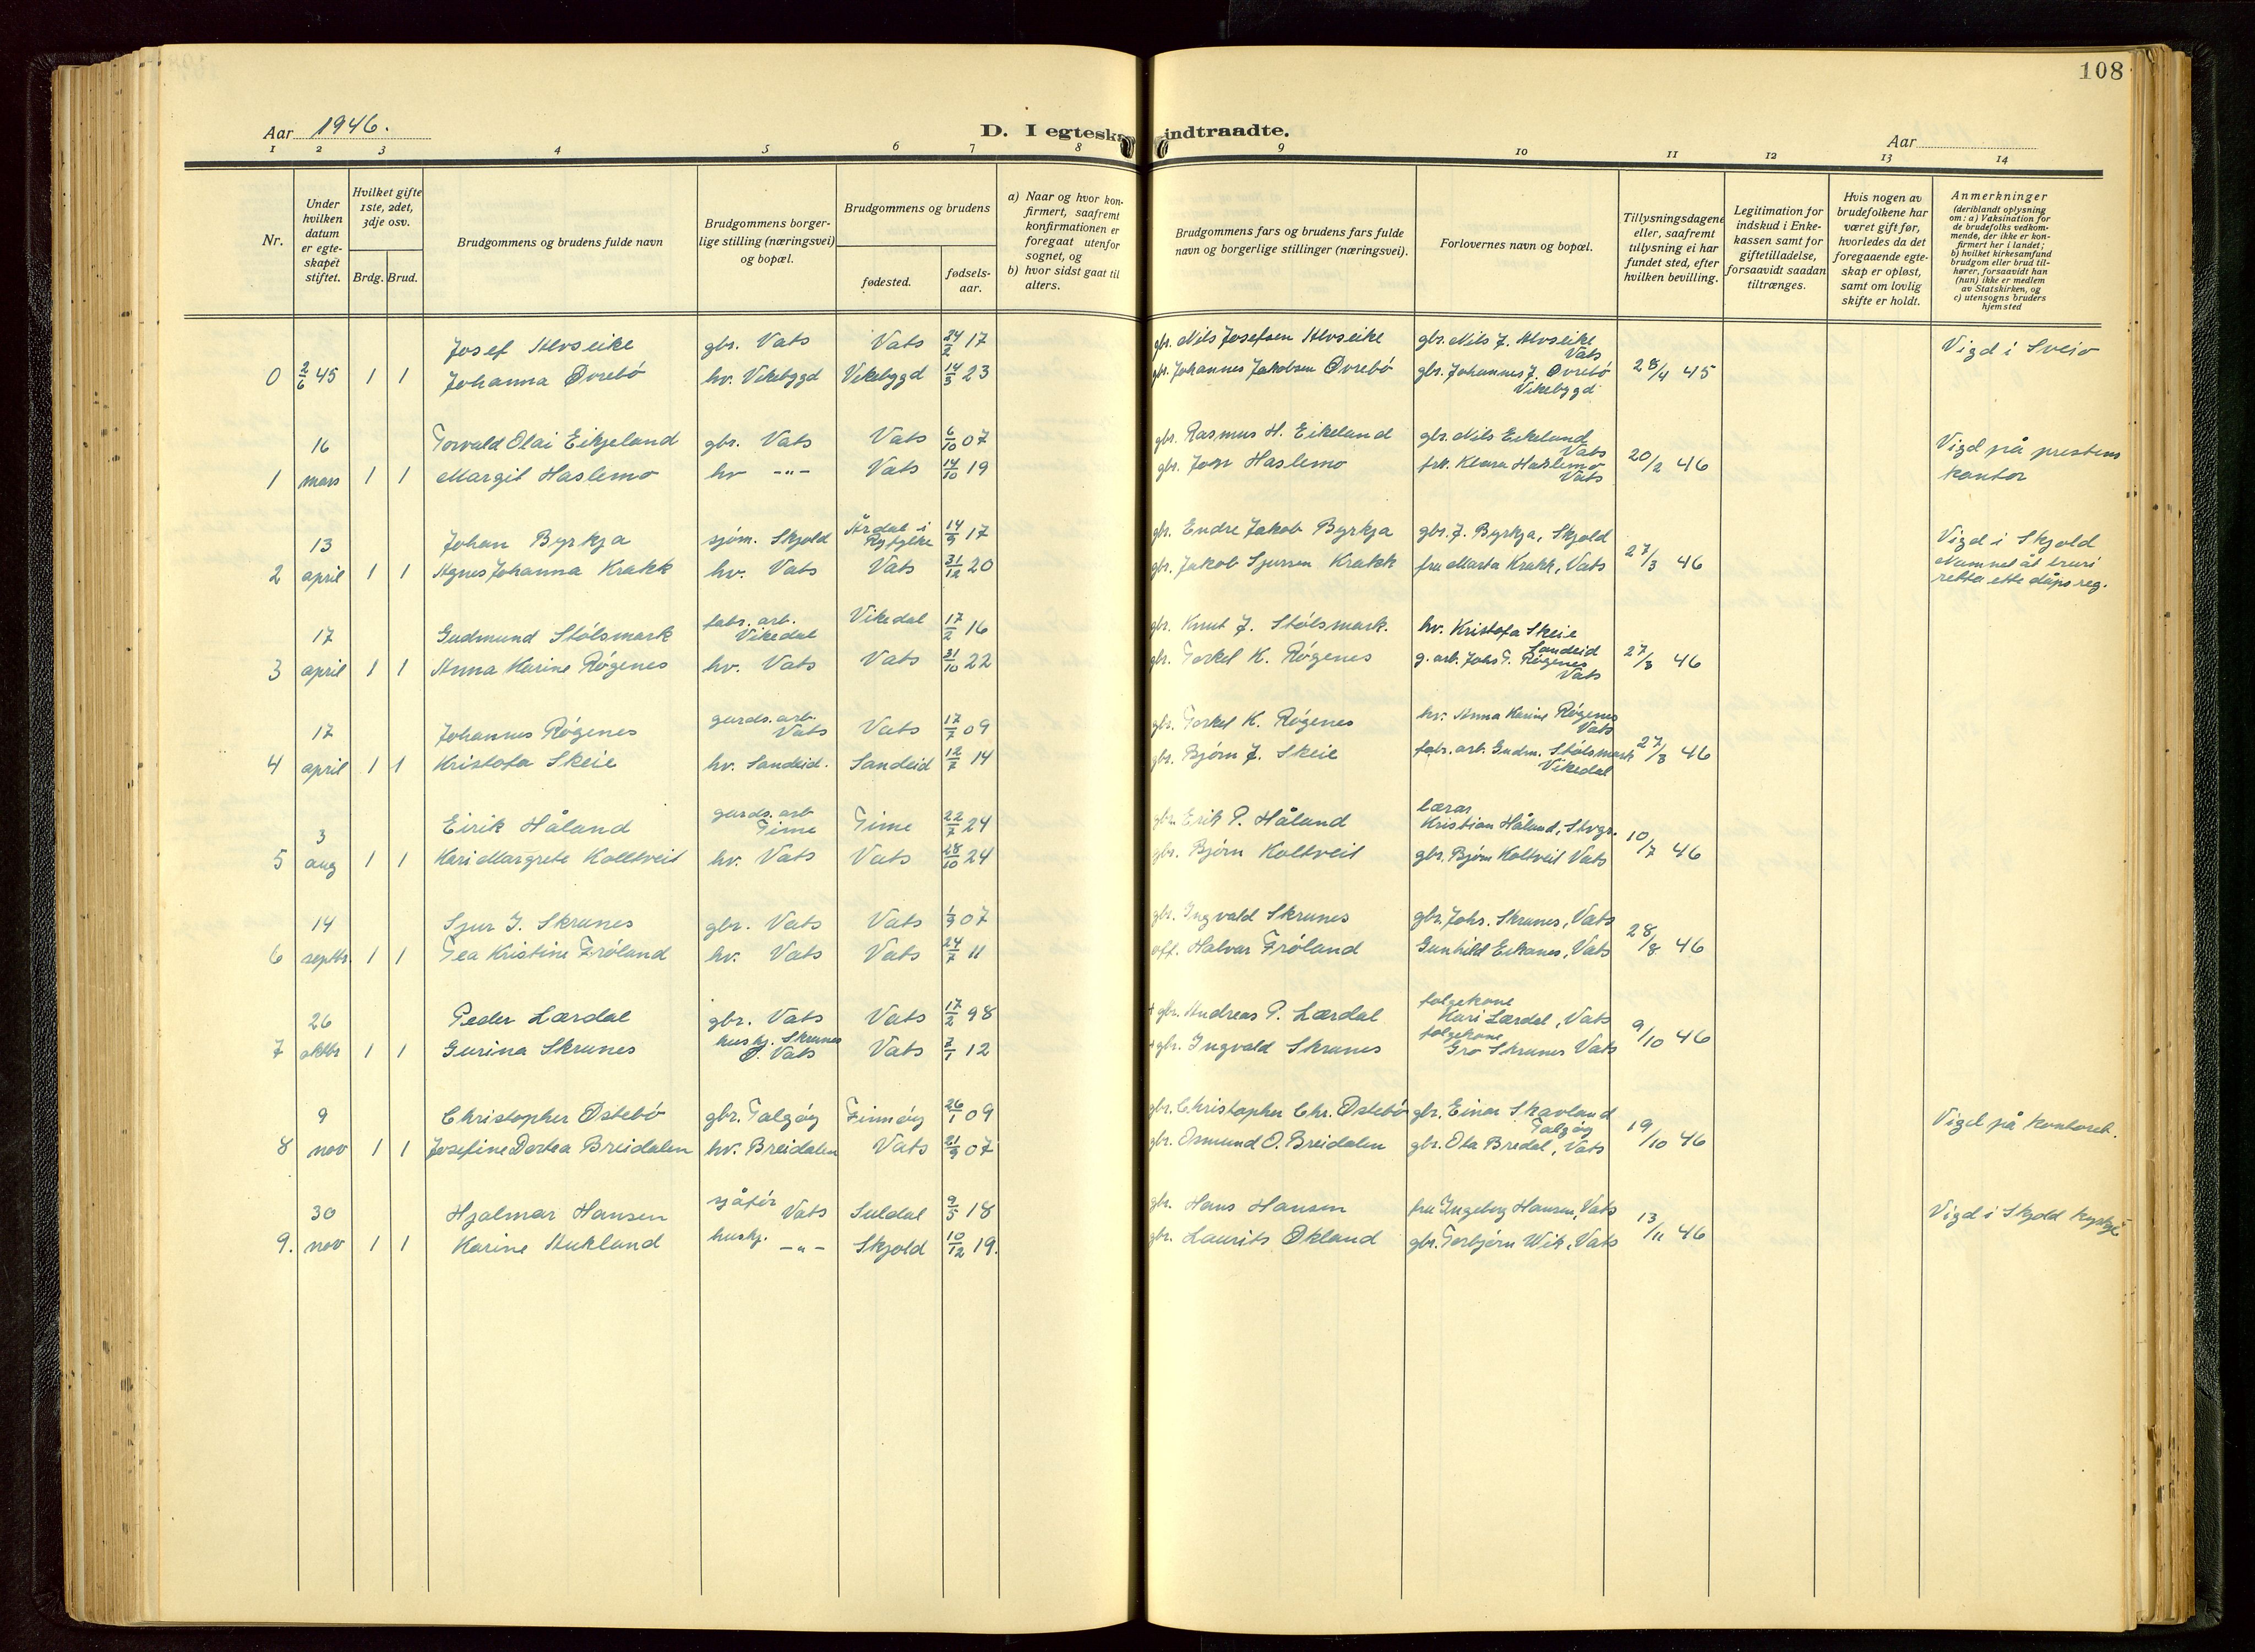 108
Aar 1946.
D. I egteska indtraadte.
Aar
1 2 3 4 5 6 7 8 9 10 11 12 13 14
Nr.
Under hvilken datum er egteskapet stiftet.
Hvilket gifte 1ste, 2det, 3dje osv.
Brdg. Brud.
Brudgommens og brudens fulde navn
Brudgommens borgerlige stilling (næringsvei) og bopæl.
Brudgommens og brudens
fødested.
fødsels-aar.
a) Naar og hvor konfirmert, saafremt konfirmationen er foregaat utenfor sognet, og
b) hvor sidst gaat til alters.
Brudgommens fars og brudens fars fulde navn og borgerlige stillinger (næringsvei).
Forlovernes navn og bopæl.
Tillysningsdagene eller, saafremt tillysning ei har fundet sted, efter hvilken bevilling.
Legitimation for indskud i Enkekassen samt for giftetilladelse, forsaavidt saadan tiltrænges.
Hvis nogen av brudefolkene har været gift før, hvorledes da det foregaaende egteskap er opløst, samt om lovlig skifte er holdt.
Anmerkninger (deriblandt oplysning om: a) Vaksination for de brudefolks vedkommende, der ikke er konfirmert her i landet; b) hvilket kirkesamfund brudgom eller brud tilhører, forsaavidt han (hun) ikke er medlem av Statskirken, og c) utensogns bruders hjemsted
Josef Alvseike gbr. Vats Vats 24/2 17 gbr. Nils Josefsen Alvseike gbr. Nils J. Alvseike Vats Vigd i Sveio
0 2/6 45 1 1 Johanna Øvrebö hv. Vikebygd Vikebygd 14/3 23 gbr. Johannes Jakobsen Øvrebö gbr. Johannes J. Øvrebö Vikebygd 28/4 45
16 Torvald Olai Eikjeland gbr. Vats Vats 6/10 07 gbr. Rasmus H. Eikeland gbr. Nils Eikeland Vats Vigd på prestens
1 mars 1 1 Margit Haslemo hv -"- Vats 14/10 19 gbr. Jon Haslemo frk. Klara Haslemo Vats 20/2 46 kontor
13 Johan Byrkja sjøm. Skjold Årdal i Ryfylke 14/9 17 gbr. Endre Jakob Byrkja gbr. J. Byrkja, Skjold Vigd i Skjold
2 april 1 1 Agnes Johanna Krakk hv. Vats Vats 31/12 20 gbr. Jakob Sjursen Krakk fru Marta Krakk, Vats 27/3 46 Namnet åt bruri retta ette dåpsreg.
17 Gudmund Stølsmark fabr. arb. Vikedal Vikedal 17/2 16 gbr. Knut J. Stølsmark. hv. Kristofa Skeie Sandeid
3 april 1 1 Anna Karine Røgenes hv. Vats Vats 31/10 22 gbr. Torkel K. Røgenes g. arb. Johs T. Røgenes Vats 27/3 46
17 Johannes Røgenes gards. arb. Vats Vats 17/7 09 gbr. Torkel K. Røgenes hv. Anna Karine Røgenes Vats
4 april 1 1 Kristofa Skeie hv. Sandeid. Sandeid 12/7 14 gbr. Bjørn J. Skeie fabr. arb. Gudm. Stølsmark Vikedal 27/3 46
3 Eirik Håland gards. arb Time Time 22/7 24 gbr. Erik P. Håland lærar Kristian Håland, Stvgr.
5 aug 1 1 Kari Margrete Kolltveit hv. Vats Vats 28/10 24 gbr. Bjørn Koltveit gbr. Bjørn Koltveit Vats 10/7 46
14 Sjur I. Skrunes gbr. Vats Vats 1/9 07 gbr. Ingvald Skrunes gbr. Johs. Skrunes, Vats
6 septbr. 1 1 Tea Kristine Frøland hv. Vats Vats 24/7 11 off. Halvar Frøland Gunhild Eikanes, Vats 28/8 46
26 Peder Lærdal gbr. Vats Vats 17/2 98 + gbr. Andreas P. Lærdal folgekone Kari Lærdal, Vats
7 oktbr 1 1 Gurina Skrunes hushj. Skrunes Vats Vats 7/1 12 + gbr. Ingvald Skrunes folgekone Gro Skrunes Vats 9/10 46
9 Christopher Østebö gbr. Talgøy Finnøy 26/1 09 gbr. Christopher Chr. Østebö gbr. Einar Skavland Talgøy Vigd på kontoret.
8 nov 1 1 Josefine Dortea Breidalen hv. Breidalen Vats 21/9 07 gbr. Osmund O. Breidalen gbr. Ola Bredal, Vats 19/10 46
30 Hjalmar Hansen sjåfør Vats Suldal 9/5 18 gbr. Hans Hansen fru Ingeborg Hansen, Vats Vigd i Skjold kyrkje
9. nov 1 1 Karine Aukland hushj. -"- Skjold 10/12 19. gbr. Laurits Økland gbr. Torbjørn Wik, Vats 13/11 46